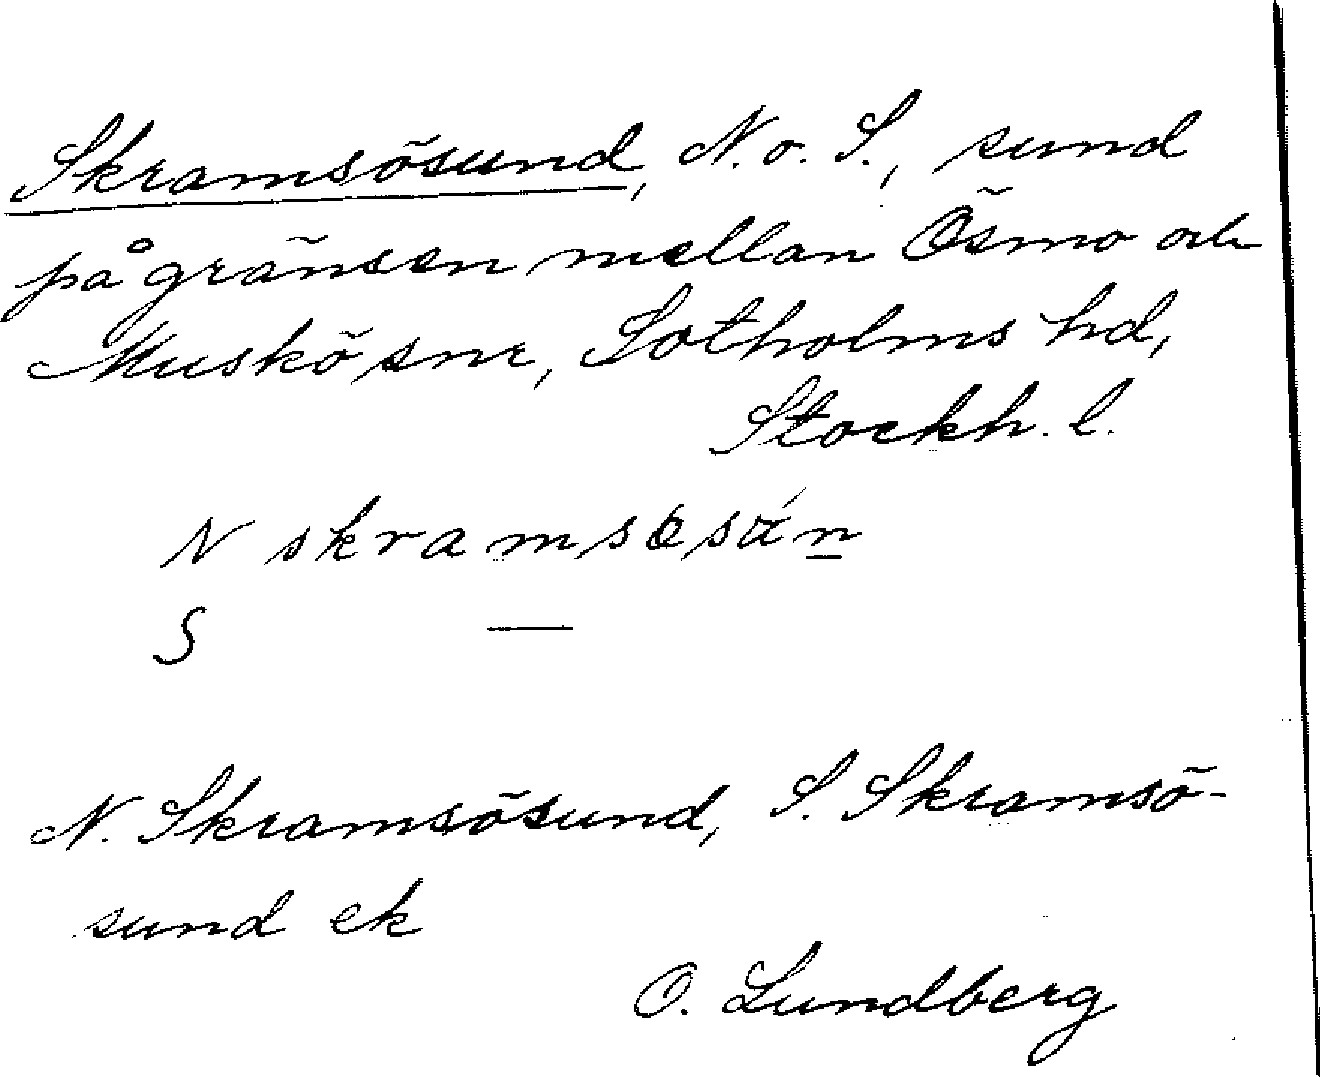 Skramsösund, N. o. S., sund
på gränsen mellan Ösmo och
Muskö snr, Sotholms hd,
Stockh. l.
N skramsösún
S —
N. Skramsösund, S. Skramsö-
sund ek
O. Lundberg